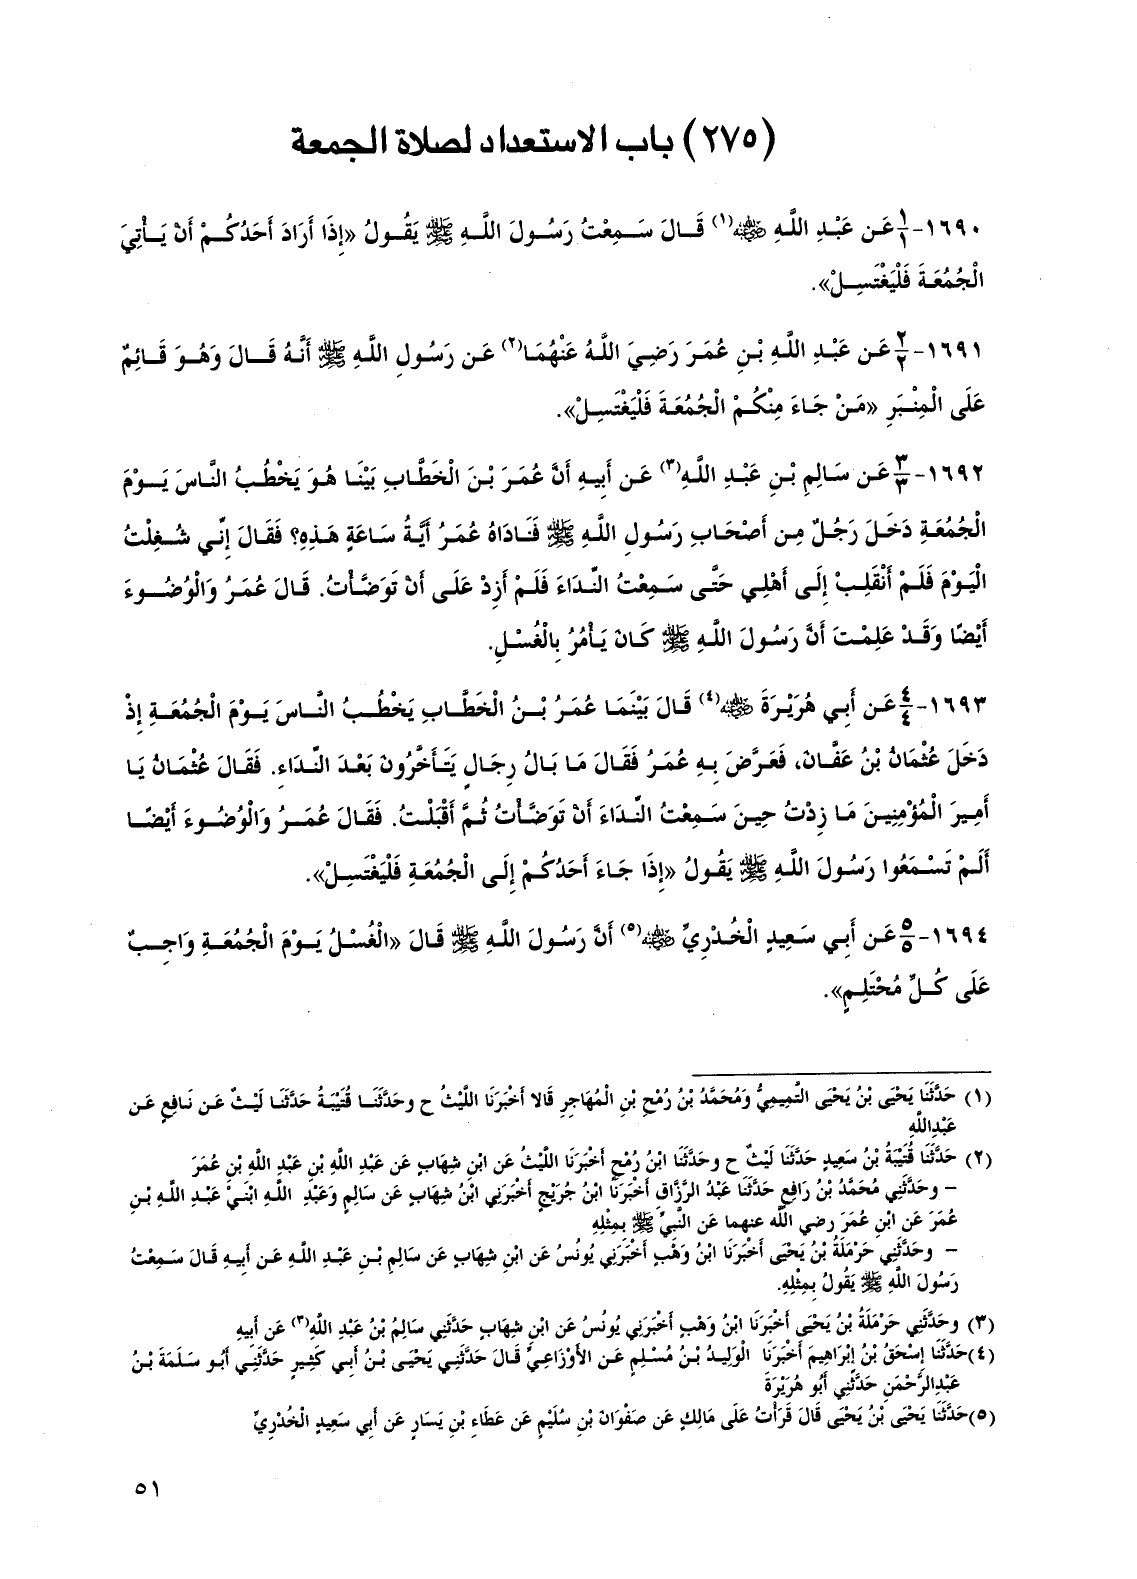 (٢٧٥) باب الاستعداد لصلاة الجمعة
١٦٩٠- ١/١ عَن عَبْدِ اللَّهِ ﵁(١) قَالَ سَمِعْتُ رَسُولَ اللَّهِ ﷺ يَقُولُ «إِذَا أَرَادَ أَحَدُكُمْ أَنْ يَأْتِيَ
الْجُمُعَةَ فَلْيَغْتَسِلْ».
١٦٩١- ٢/٢ عَن عَبْدِ اللَّهِ بْنِ عُمَرَ رَضِيَ اللَّهُ عَنْهُمَا(٢) عَن رَسُولِ اللَّهِ ﷺ أَنَّهُ قَالَ وَهُوَ قَائِمٌ
عَلَى الْمِنْبَرِ «مَنْ جَاءَ مِنْكُمْ الْجُمُعَةَ فَلْيَغْتَسِلْ».
١٦٩٢- ٣/٣ عَن سَالِمِ بْنِ عَبْدِ اللَّهِ(٣) عَن أَبِيهِ أَنَّ عُمَرَ بْنَ الْخَطَّابِ بَيْنَا هُوَ يَخْطُبُ النَّاسَ يَوْمَ
الْجُمُعَةِ دَخَلَ رَجُلٌ مِن أَصْحَابِ رَسُولِ اللَّهِ ﷺ فَنَادَاهُ عُمَرُ أَيَّةُ سَاعَةٍ هَذِهِ؟ فَقَالَ إِنِّي شُغِلْتُ
الْيَوْمَ فَلَمْ أَنْقَلِبْ إِلَى أَهْلِي حَتَّى سَمِعْتُ النِّدَاءَ فَلَمْ أَزِدْ عَلَى أَنْ تَوَضَّأْتُ. قَالَ عُمَرُ وَالْوُضُوءَ
أَيْضًا وَقَدْ عَلِمْتَ أَنَّ رَسُولَ اللَّهِ ﷺ كَانَ يَأْمُرُ بِالْغُسْلِ.
١٦٩٣- ٤/٤ عَن أَبِي هُرَيْرَةَ ﵁(٤) قَالَ بَيْنَمَا عُمَرُ بْنُ الْخَطَّابِ يَخْطُبُ النَّاسَ يَوْمَ الْجُمُعَةِ إِذْ
دَخَلَ عُثْمَانُ بْنُ عَفَّانَ، فَعَرَّضَ بِهِ عُمَرُ فَقَالَ مَا بَالُ رِجَالٍ يَتَأَخَّرُونَ بَعْدَ النِّدَاءِ. فَقَالَ عُثْمَانُ يَا
أَمِيرَ الْمُؤْمِنِينَ مَا زِدْتُ حِينَ سَمِعْتُ النِّدَاءَ أَنْ تَوَضَّأْتُ ثُمَّ أَقْبَلْتُ. فَقَالَ عُمَرُ وَالْوُضُوءَ أَيْضًا
أَلَمْ تَسْمَعُوا رَسُولَ اللَّهِ ﷺ يَقُولُ «إِذَا جَاءَ أَحَدُكُمْ إِلَى الْجُمُعَةِ فَلْيَغْتَسِلْ».
١٦٩٤- ٥/٥ عَن أَبِي سَعِيدٍ الْخُدْرِيِّ ﵁(٥) أَنَّ رَسُولَ اللَّهِ ﷺ قَالَ «الْغُسْلُ يَوْمَ الْجُمُعَةِ وَاجِبٌ
عَلَى كُلِّ مُحْتَلِمٍ».
(١) حَدَّثَنَا يَحْيَى بْنُ يَحْيَى التَّمِيمِيُّ وَمُحَمَّدُ بْنُ رُمْحِ بْنِ الْمُهَاجِرِ قَالا أَخْبَرَنَا اللَّيْثُ ح وحَدَّثَنَا قُتَيْبَةُ حَدَّثَنَا لَيْثٌ عَن نَافِعٍ عَن
عَبْدِاللَّهِ
(٢) حَدَّثَنَا قُتَيْبَةُ بْنُ سَعِيدٍ حَدَّثَنَا لَيْثٌ ح وحَدَّثَنَا ابْنُ رُمْحٍ أَخْبَرَنَا اللَّيْثُ عَن ابْنِ شِهَابٍ عَن عَبْدِ اللَّهِ بْنِ عَبْدِ اللَّهِ بْنِ عُمَرَ
– وحَدَّثَنِي مُحَمَّدُ بْنُ رَافِعٍ حَدَّثَنَا عَبْدُ الرَّزَّاقِ أَخْبَرَنَا ابْنُ جُرَيْجٍ أَخْبَرَنِي ابْنُ شِهَابٍ عَن سَالِمٍ وَعَبْدِ اللَّهِ ابْنَيْ عَبْدِ اللَّهِ بْنِ
عُمَرَ عَن ابْنِ عُمَرَ رضي اللَّه عنهما عَن النَّبِيِّ ﷺ بِمِثْلِهِ
– وحَدَّثَنِي حَرْمَلَةُ بْنُ يَحْيَى أَخْبَرَنَا ابْنُ وَهْبٍ أَخْبَرَنِي يُونُسُ عَن ابْنِ شِهَابٍ عَن سَالِمِ بْنِ عَبْدِ اللَّهِ عَن أَبِيهِ قَالَ سَمِعْتُ
رَسُولَ اللَّهِ ﷺ يَقُولُ بِمِثْلِهِ.
(٣) وحَدَّثَنِي حَرْمَلَةُ بْنُ يَحْيَى أَخْبَرَنَا ابْنُ وَهْبٍ أَخْبَرَنِي يُونُسُ عَن ابْنِ شِهَابٍ حَدَّثَنِي سَالِمُ بْنُ عَبْدِ اللَّهِ(٣) عَن أَبِيهِ
(٤)حَدَّثَنَا إِسْحَقُ بْنُ إِبْرَاهِيمَ أَخْبَرَنَا الْوَلِيدُ بْنُ مُسْلِمٍ عَن الأَوْزَاعِيِّ قَالَ حَدَّثَنِي يَحْيَى بْنُ أَبِي كَثِيرٍ حَدَّثَنِي أَبُو سَلَمَةَ بْنُ
عَبْدِالرَّحْمَنِ حَدَّثَنِي أَبُو هُرَيْرَةَ
(٥)حَدَّثَنَا يَحْيَى بْنُ يَحْيَى قَالَ قَرَأْتُ عَلَى مَالِكٍ عَن صَفْوَانَ بْنِ سُلَيْمٍ عَن عَطَاءِ بْنِ يَسَارٍ عَن أَبِي سَعِيدٍ الْخُدْرِيِّ
٥١